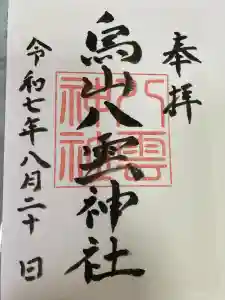 奉拝
烏山八雲神社
八雲神社
令和七年八月二十日